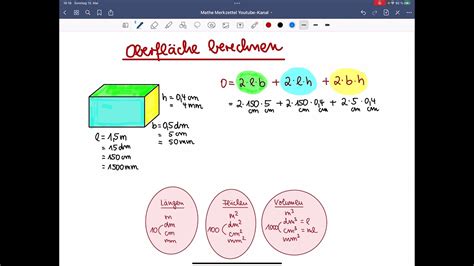 Mathe Merkzettel Youtube-Kanal
Oberfläche berechnen
h = 0,4cm
= 4mm
b = 0,5dm
= 5cm
= 50mm
l = 1,5m
= 15dm
= 150cm
= 1500mm
O = 2·l·b + 2·l·h + 2·b·h
= 2·150·5 + 2·150·0,4 + 2·5·0,4
cm cm cm cm cm cm
Längen
m
10 dm
cm
mm
Flächen
m²
100 dm²
cm²
mm²
Volumen
m³
1000 dm³ = l
cm³ = ml
mm³